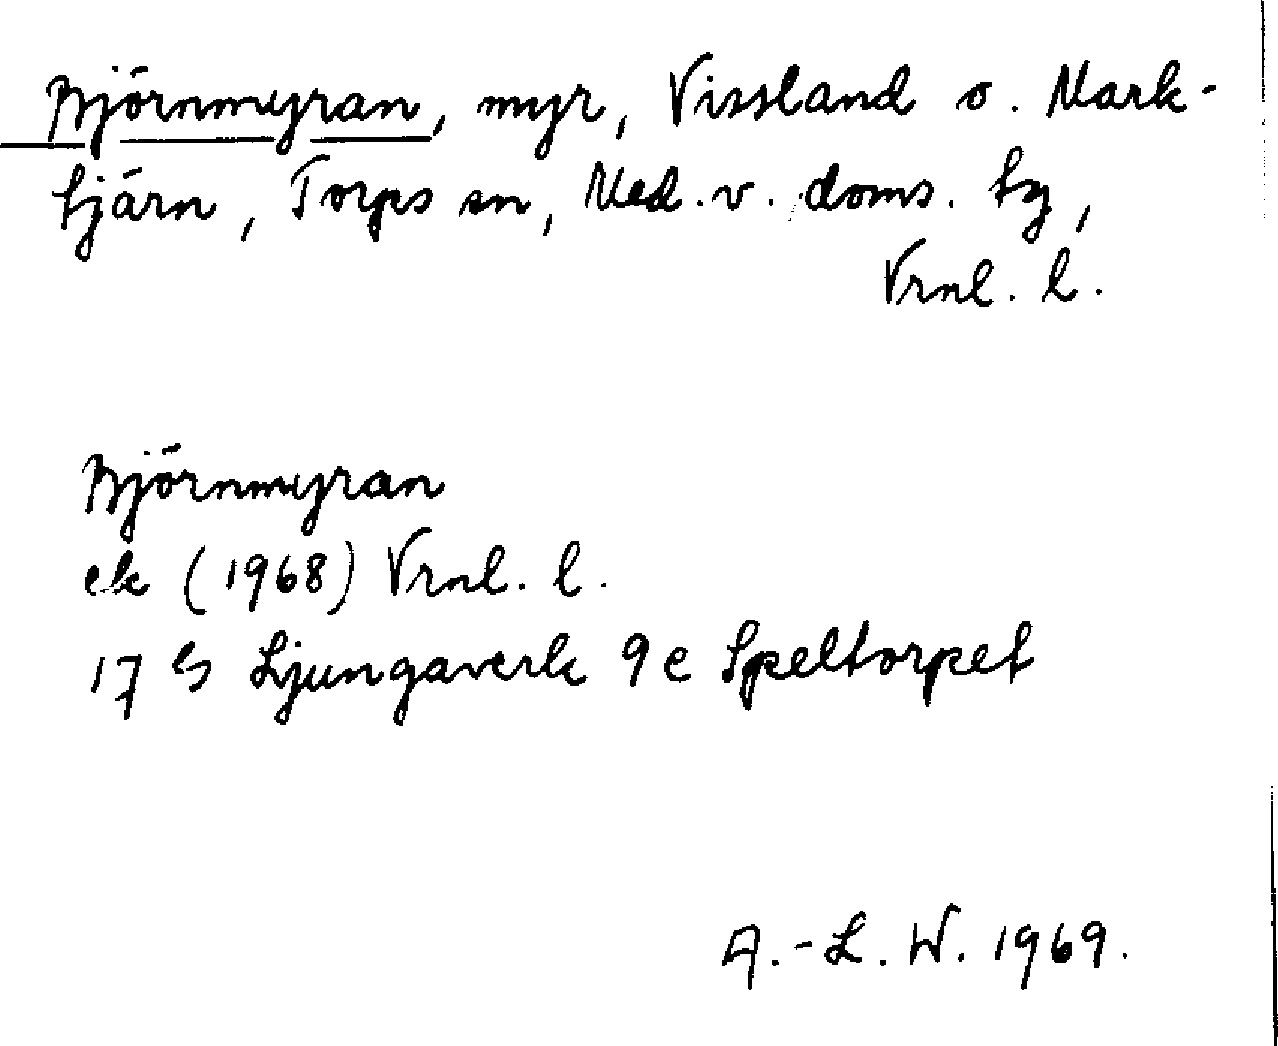 Björnmyran, myr, Vissland o. Mark-
tjärn, Torps sn, Med. v. doms. tg,
Vrnl. l.
Björnmyran
ek (1968) Vrnl. l.
17 G Ljungaverk 9 e Speltorpet
A.-L. W. 1969.